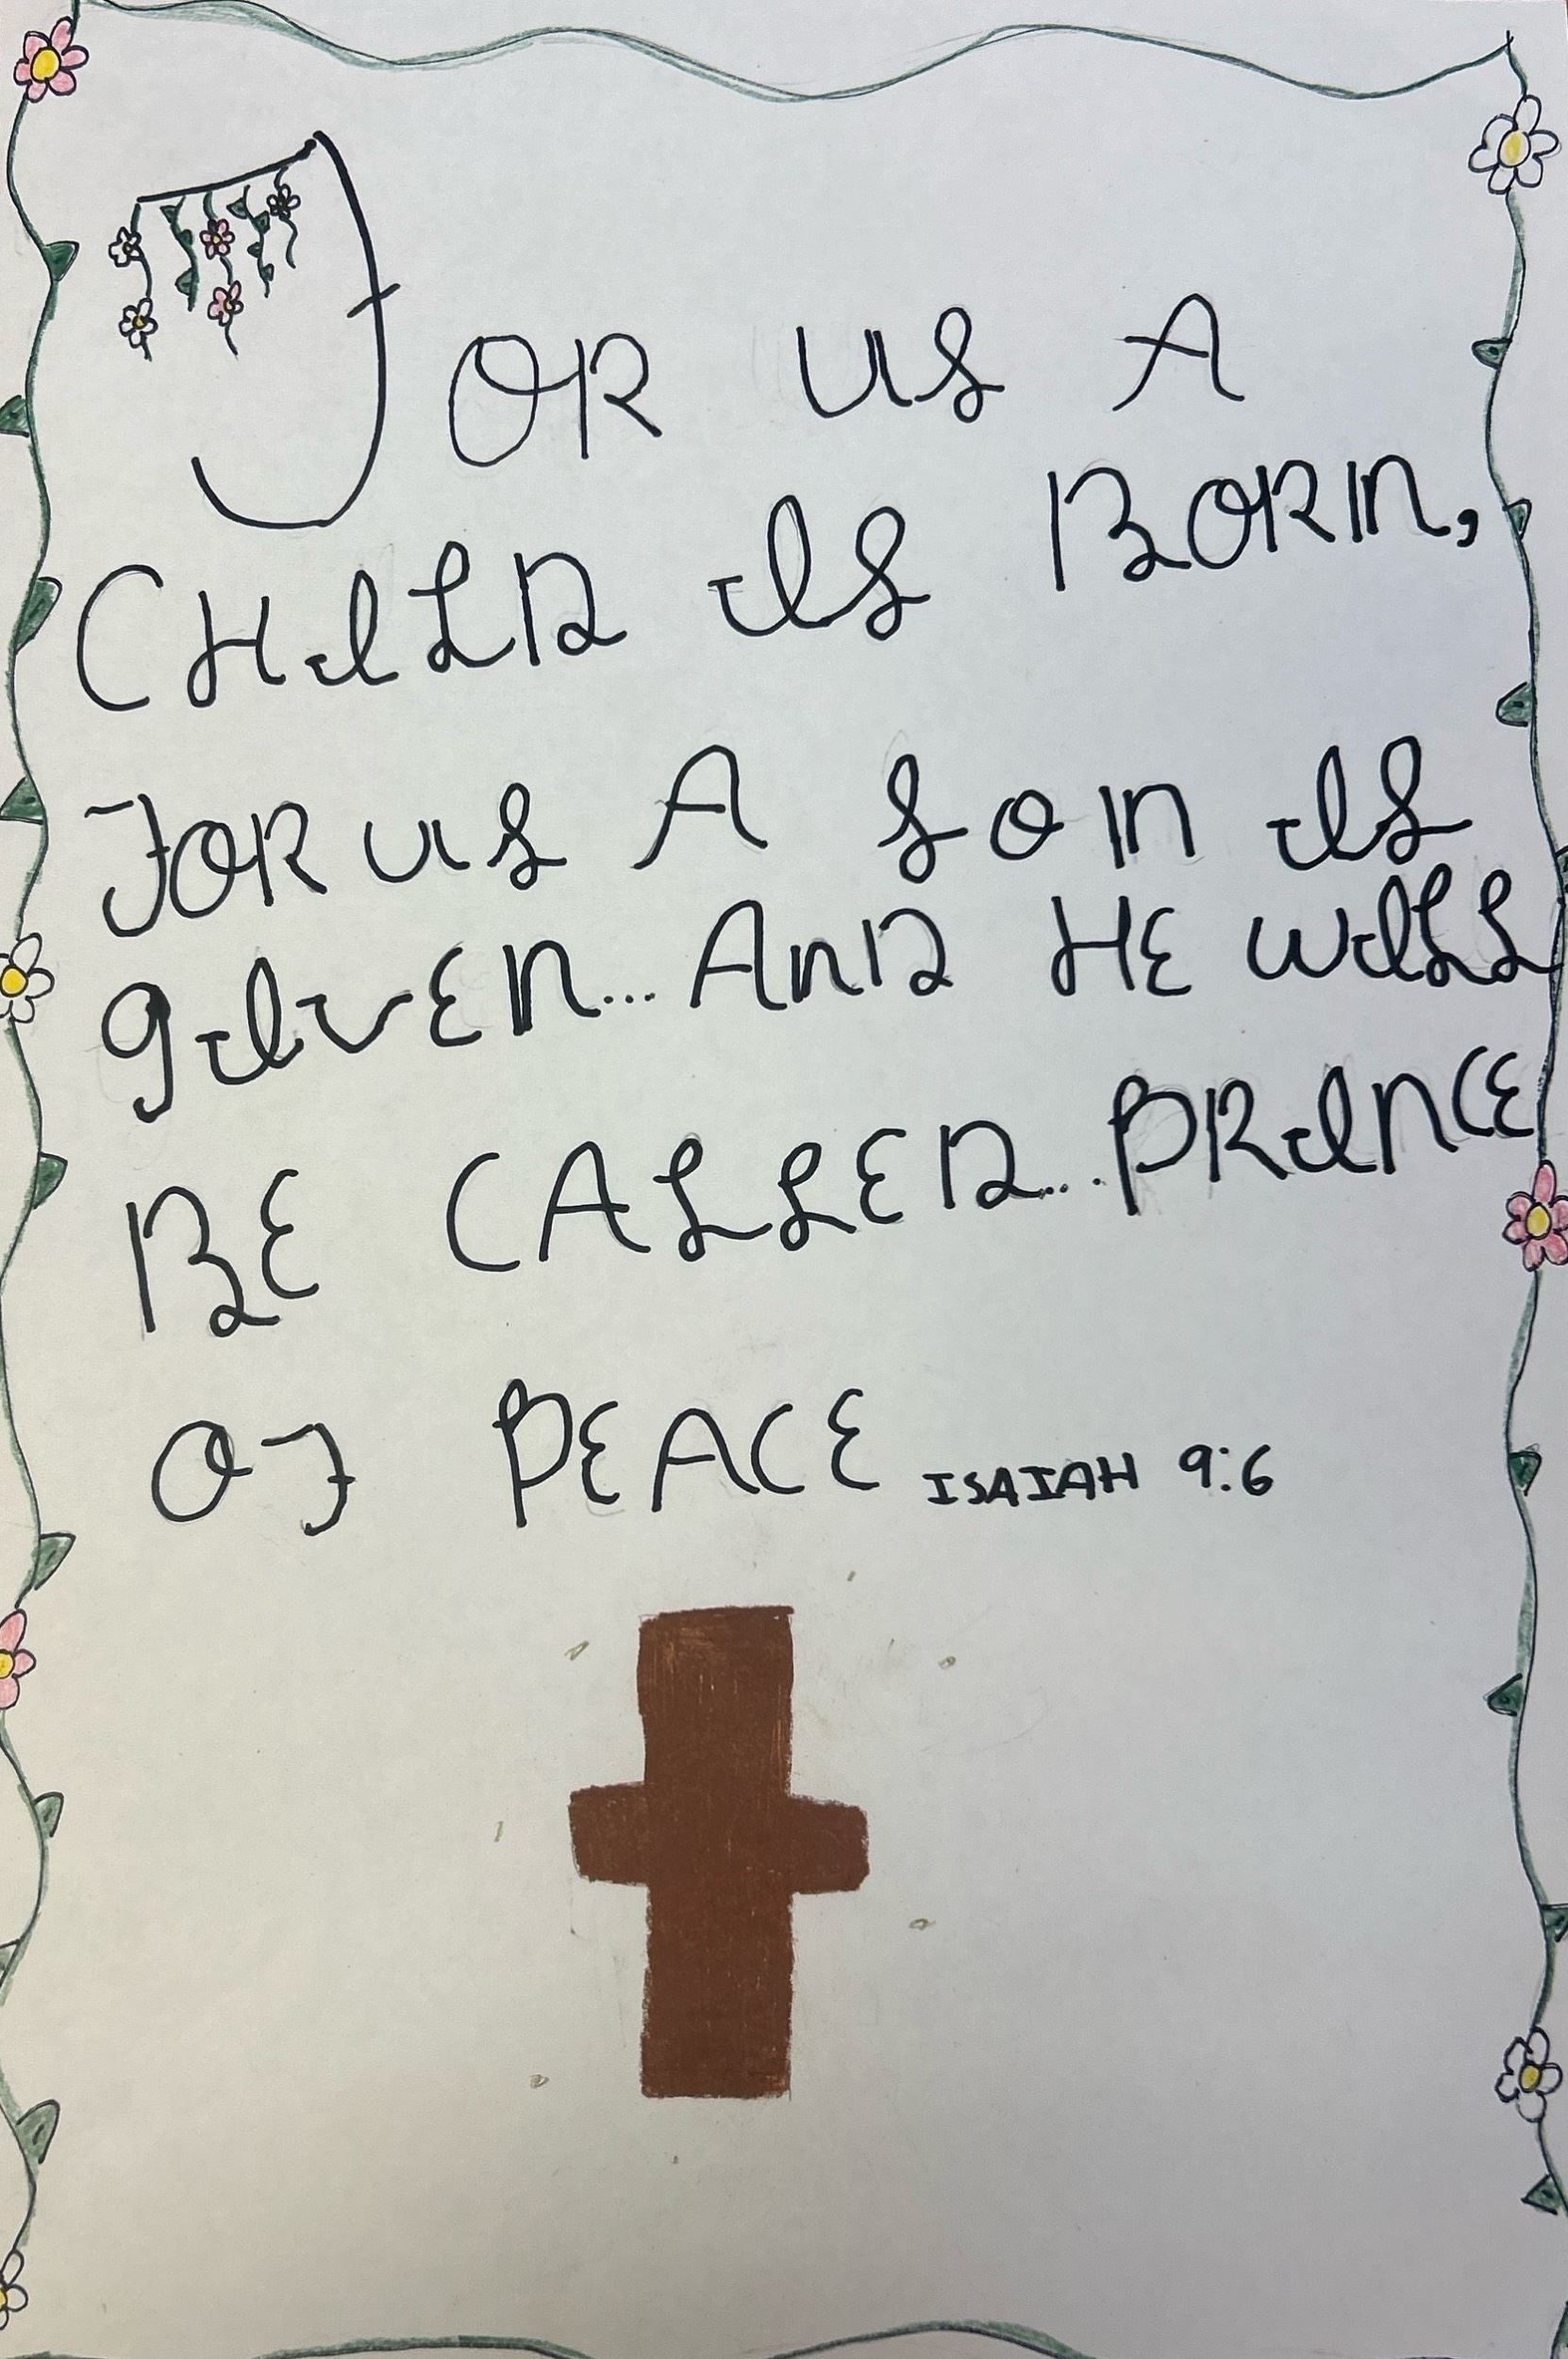 FOR US A
CHILD IS BORN,
FOR US A SON IS
GIVEN... AND HE WILL
BE CALLED... PRINCE
OF PEACE ISAIAH 9:6